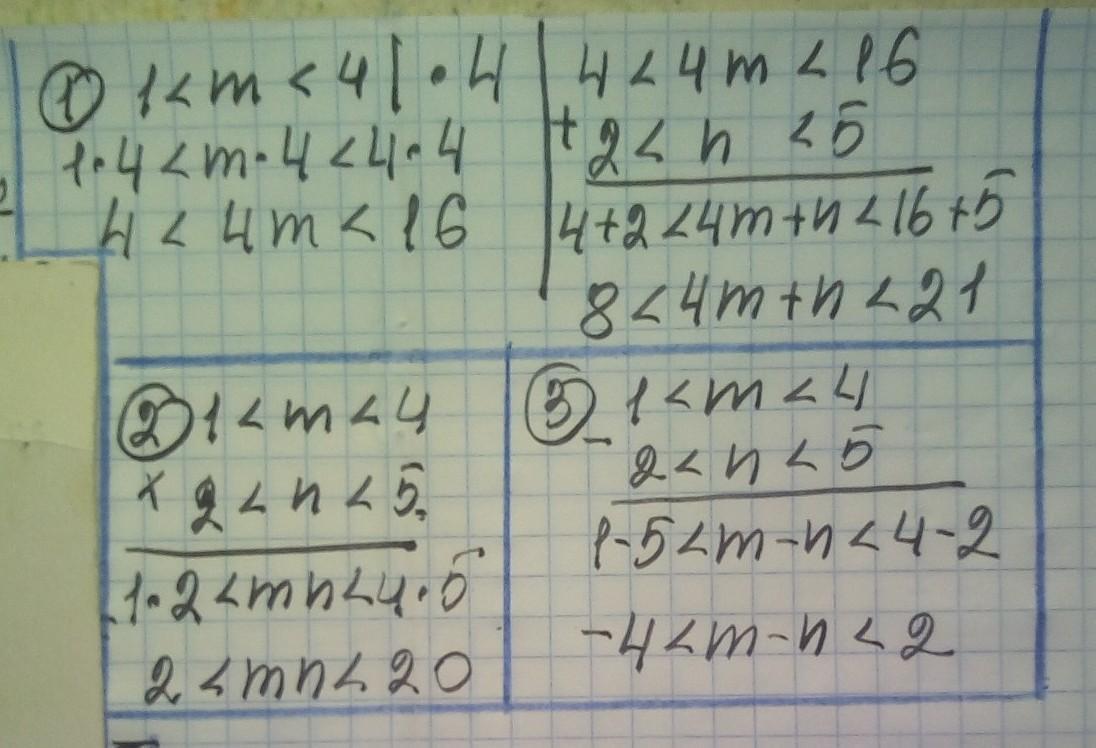 ① 1 < m < 4 | · 4
1·4 < m·4 < 4·4
4 < 4m < 16
4 < 4m < 16
+ 2 < n < 5
4+2 < 4m+n < 16+5
8 < 4m+n < 21
② 1 < m < 4
× 2 < n < 5
1·2 < mn < 4·5
2 < mn < 20
③ 1 < m < 4
− 2 < n < 5
1-5 < m-n < 4-2
-4 < m-n < 2